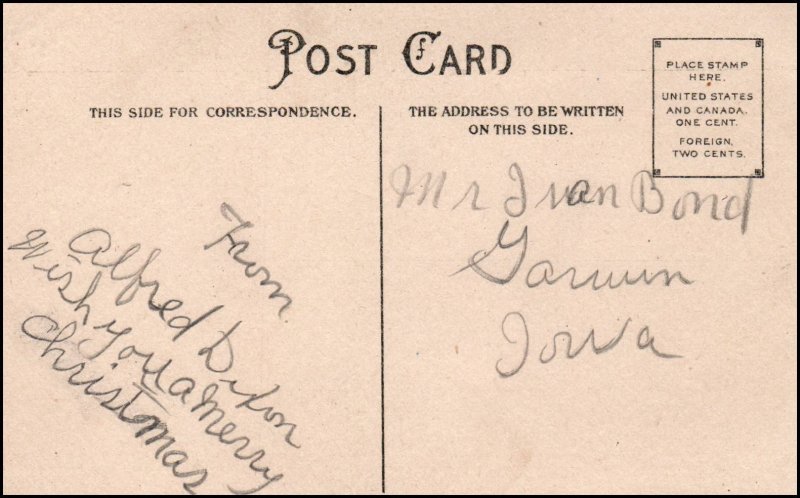 POST CARD
THIS SIDE FOR CORRESPONDENCE.
THE ADDRESS TO BE WRITTEN
ON THIS SIDE.
PLACE STAMP
HERE.
UNITED STATES
AND CANADA.
ONE CENT.
FOREIGN,
TWO CENTS.
From
Alfred Dixon
Wish you a Merry
Christmas
Mr Ivan Bond
Garwin
Iowa